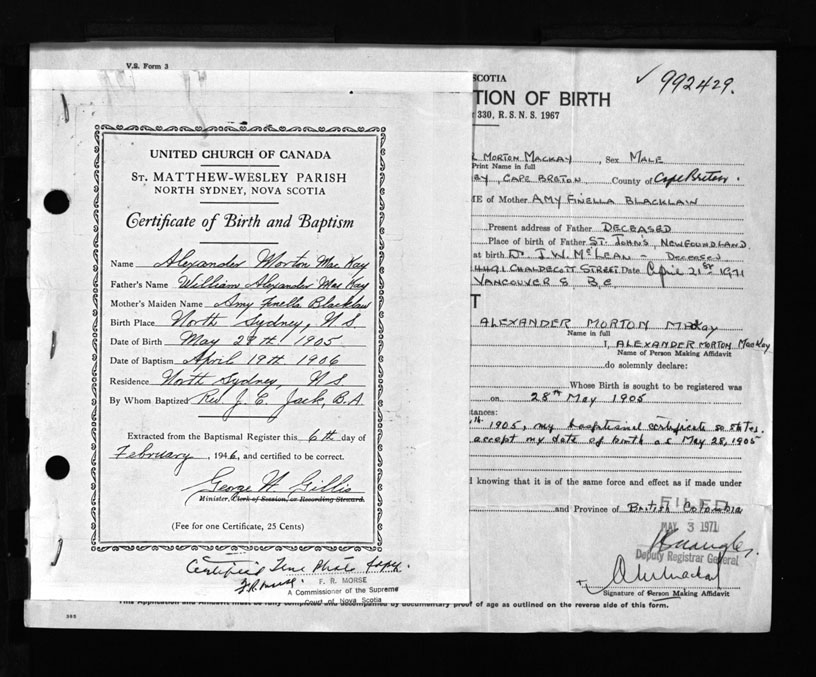 V.S. Form 3
UNITED CHURCH OF CANADA
ST. MATTHEW-WESLEY PARISH
NORTH SYDNEY, NOVA SCOTIA
Certificate of Birth and Baptism
Name Alexander Morton Mac Kay
Father's Name William Alexander Mac Kay
Mother's Maiden Name Amy Finella Blacklaw
Birth Place North Sydney, N S.
Date of Birth May 29th, 1905
Date of Baptism April 19th, 1906
Residence North Sydney, N S
By Whom Baptized Rev J. C. Jack, B.A
Extracted from the Baptismal Register this 6th day of
February, 1946, and certified to be correct.
George W. Gillis
Minister, Clerk of Session, or Recording Steward.
(Fee for one Certificate, 25 Cents)
Certified True Photo Copy.
F.R. Morse.
F. R. MORSE
A Commissioner of the Supreme
Court of Nova Scotia
SCOTIA
✓ 992429.
TION OF BIRTH
330, R.S.N.S. 1967
R MORTON MACKAY, Sex MALE
Print Name in full
EY, CAPE BRETON County of Cape Breton.
ME of Mother AMY FINELLA BLACKLAW
Present address of Father DECEASED
Place of birth of Father ST. JOHN'S, NEWFOUNDLAND.
at birth Dr. J.W. McLEAN - DECEASED
4491 CHALDECOTT STREET Date April 21st 1971
VANCOUVER 8 B.C.
T
ALEXANDER MORTON MacKay
Name in full
I, ALEXANDER MORTON MacKay
Name of Person Making Affidavit
do solemnly declare:
Whose Birth is sought to be registered was
on 28th MAY 1905
stances:
th 1905, my baptisimal certificate so states.
accept my date of birth as May 28, 1905
d knowing that it is of the same force and effect as if made under
and Province of British Columbia
FILED
MAY 3 1971
Deputy Registrar General
Signature of Person Making Affidavit
This Application and Affidavit must be fully completed and accompanied by documentary proof of age as outlined on the reverse side of this form.